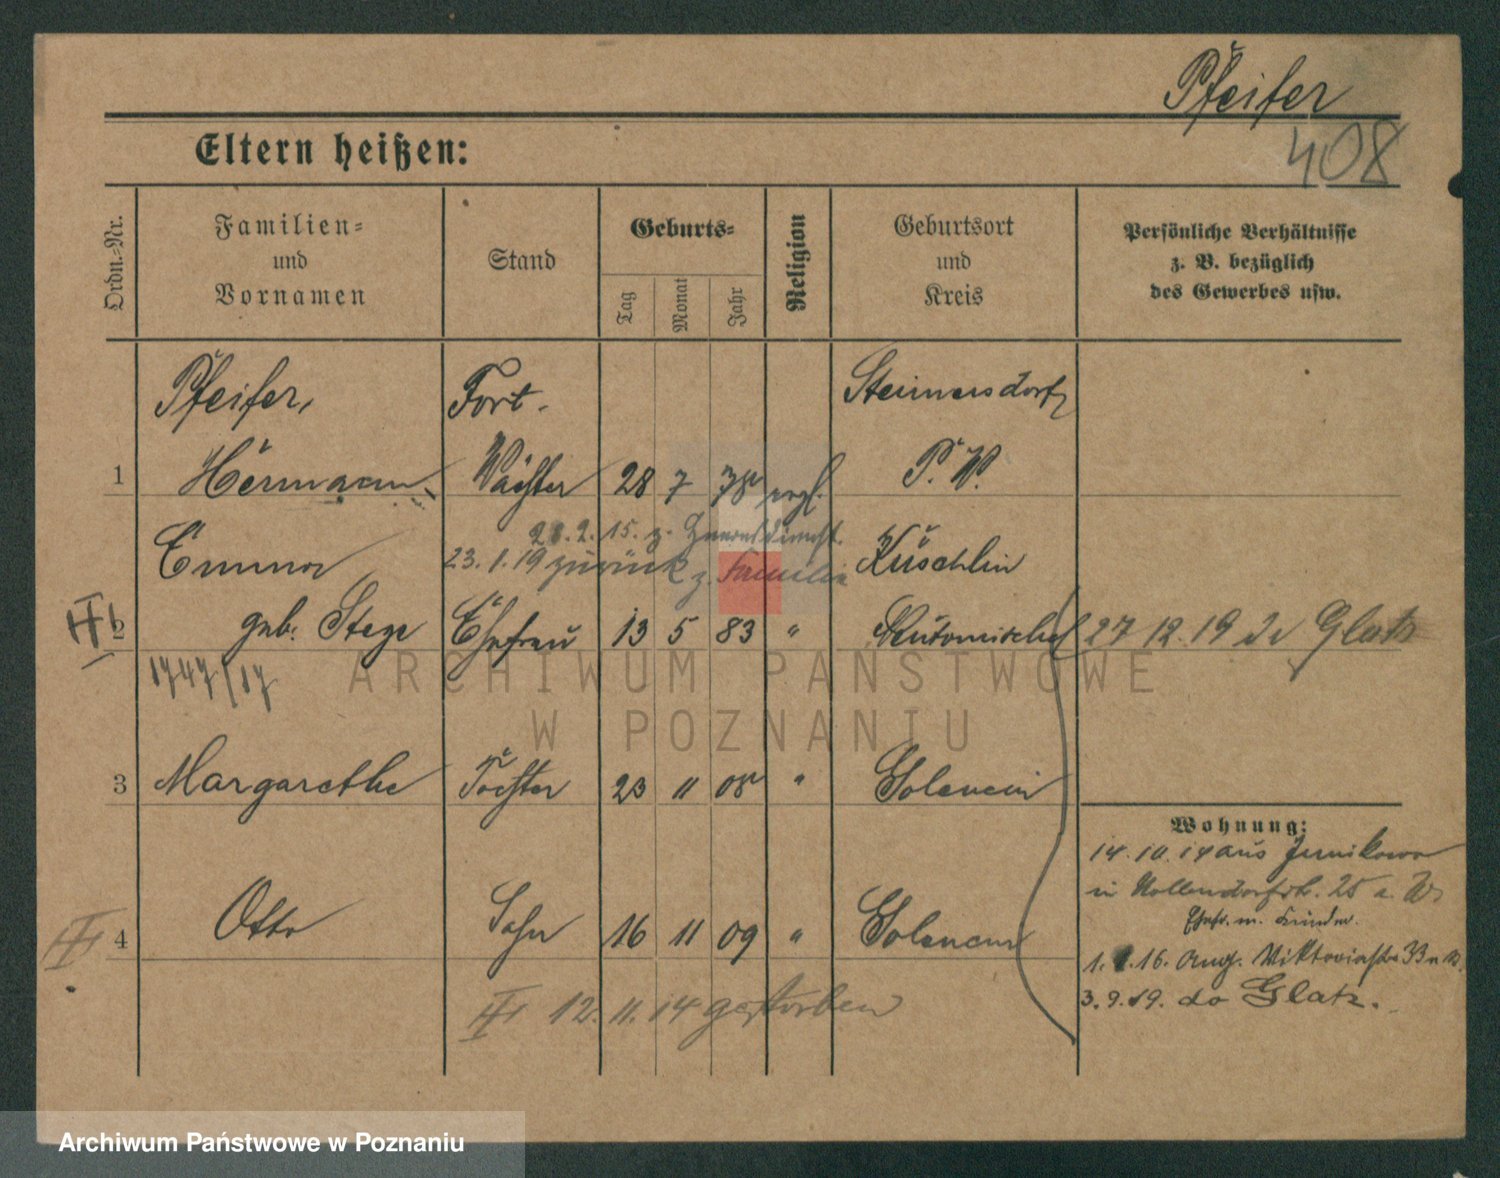 Pfeifer
408
Eltern heißen:
Ordn.-Nr.
Familien-
und
Vornamen
Stand
Geburts-
Tag
Monat
Jahr
Religion
Geburtsort
und
Kreis
Persönliche Verhältnisse
z. B. bezüglich
des Gewerbes usw.
Pfeifer, Fort.
1 Hermann Wächter 28 7 78 evgl. P. W.
23.1.19 zurück z. Familie
Emma Küschlin
2 geb. Stege Ehefrau 13 5 83 " 27 12. 19 Glatz
1747/17
3 Margarethe Tochter 23 11 08 "
Wohnung:
14.10.14 aus Junikowo
in 25
Ehefr. m. Kinder.
4 Otto Sohn 16 11 09 "
16. Aug. Viktoriastr 33
3.9.19. do Glatz.
12.11.14 gestorben
ARCHIWUM PAŃSTWOWE
W POZNANIU
Archiwum Państwowe w Poznaniu